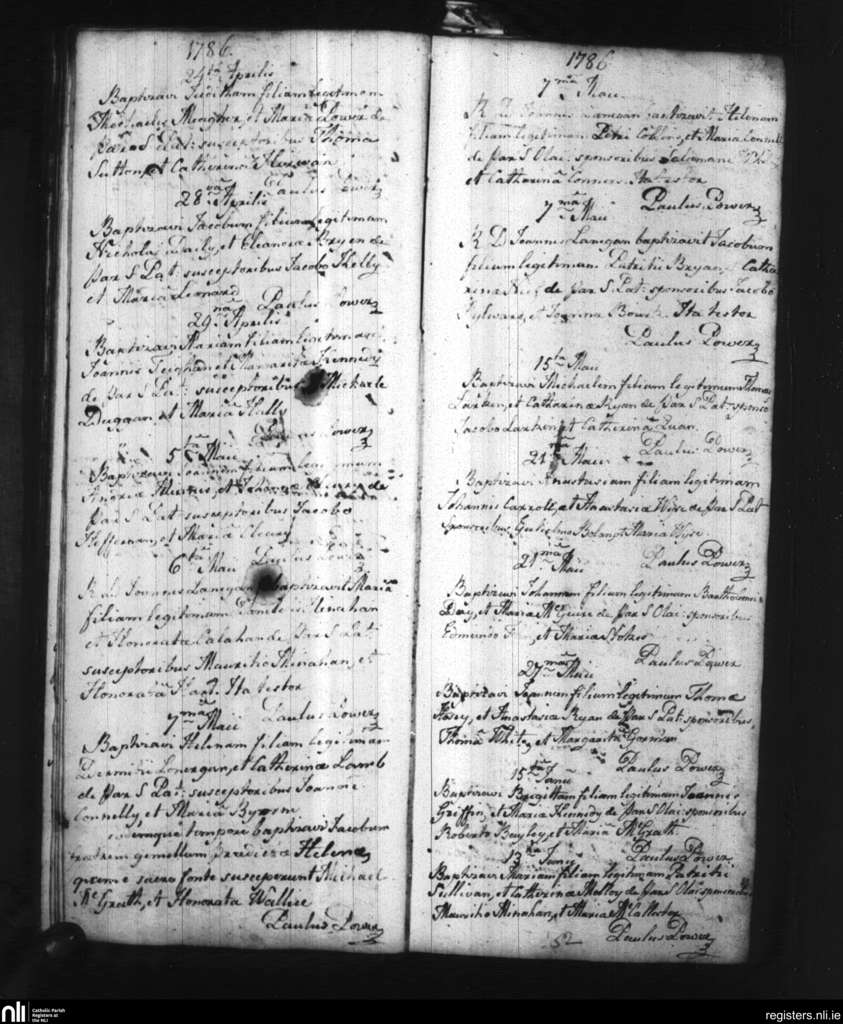 1786
24ta Aprilis
Baptizavi Juditham filiam legitimam
Michaelis Meagher, et Maria Power de
Par S Pat: susceptoribus Thoma
Sutton, et Catherina
Paulus Power
28va Aprilis
Baptizavi Jacobum filium legitimum
Nicholai Daily, et Eleanora Bryen de
Par S Pat: susceptoribus Jacobo Kelly
et Maria Leonard
Paulus Power
29na Aprilis
Baptizavi Mariam filiam legitimam
Joannis et Margarita Kennedy
de Par S Pat: susceptoribus Michaele
Duggan et Maria Hally
Paulus Power
5ta Maii
Baptizavi Joannem filium legitimum
Andrea et Johanna de
Par S Pat: susceptoribus Jacobo
Heffernan, et Maria Cleary
6ta Maii Paulus Power
R D Joannis Lanigan baptizavit Maria
filiam legitimam Minahan
et Honorata Calahan de Par S Pat:
susceptoribus Mauritio Minahan, et
Honorata Hart. Ita testor
7ma Maii Paulus Power
Baptizavi Helenam filiam legitimam
Dermitii Lonergan, et Catherina Lamb
de Par S Pat: susceptoribus Joanne
Connelly, et Maria Byrne
eodemque tempore baptizavi Jacobum
fratrem gemellum praedicta Helena
quem e sacro fonte susceperunt Michael
McGrath, et Honorata Wallice
Paulus Power
1786
7ma Maii
R D Joannis Lanigan baptizavit Helenam
filiam legitimam Petri Collins, et Maria Connell
de Par S Olai: sponsoribus
et Catharina Connors. Ita testor
7ma Maii Paulus Power
R D Joannis Lanigan baptizavit Jacobum
filium legitimum Patritii Bryan, et Catha
rina de Par S Pat: sponsoribus Jacobo
Aylward, et Joanna Bourk. Ita testor
Paulus Power
15ta Maii
Baptizavi Michaelem filium legitimum Thoma
Larken, et Catharina Ryan de Par S Pat: sponso
Jacobo Larken, et Catherina Quan.
21ma Maii Paulus Power
Baptizavi Anastasiam filiam legitimam
Johannis Carroll, et Anastasia Wise de Par S Pat
sponsoribus Gulielmo Bolan, et Maria Wyse
21ma Maii Paulus Power
Baptizavi Johannam filiam legitimam Bartholomei
Daly, et Maria McGuire de Par S Olai: sponsoribus
Edmundo, et Maria Stokes
27ma Maii Paulus Power
Baptizavi Joannem filium legitimum Thoma
Hasey, et Anastasia Ryan de Par S Pat: sponsoribus
Thoma White, et Margarita Gorman
15ta Junii Paulus Power
Baptizavi Brigittam filiam legitimam Joannis
Griffin, et Maria Kennedy de Par S Olai: sponsoribus
Roberto Bayley, et Maria McGrath.
13tia Junii Paulus Power
Baptizavi Mariam filiam legitimam Patritii
Sullivan, et Catherina Molloy de Par S Olai: sponsoribus
Mauritio Minahan, et Maria McCallister
52 Paulus Power
nli Catholic Parish
Registers at
the NLI
registers.nli.ie